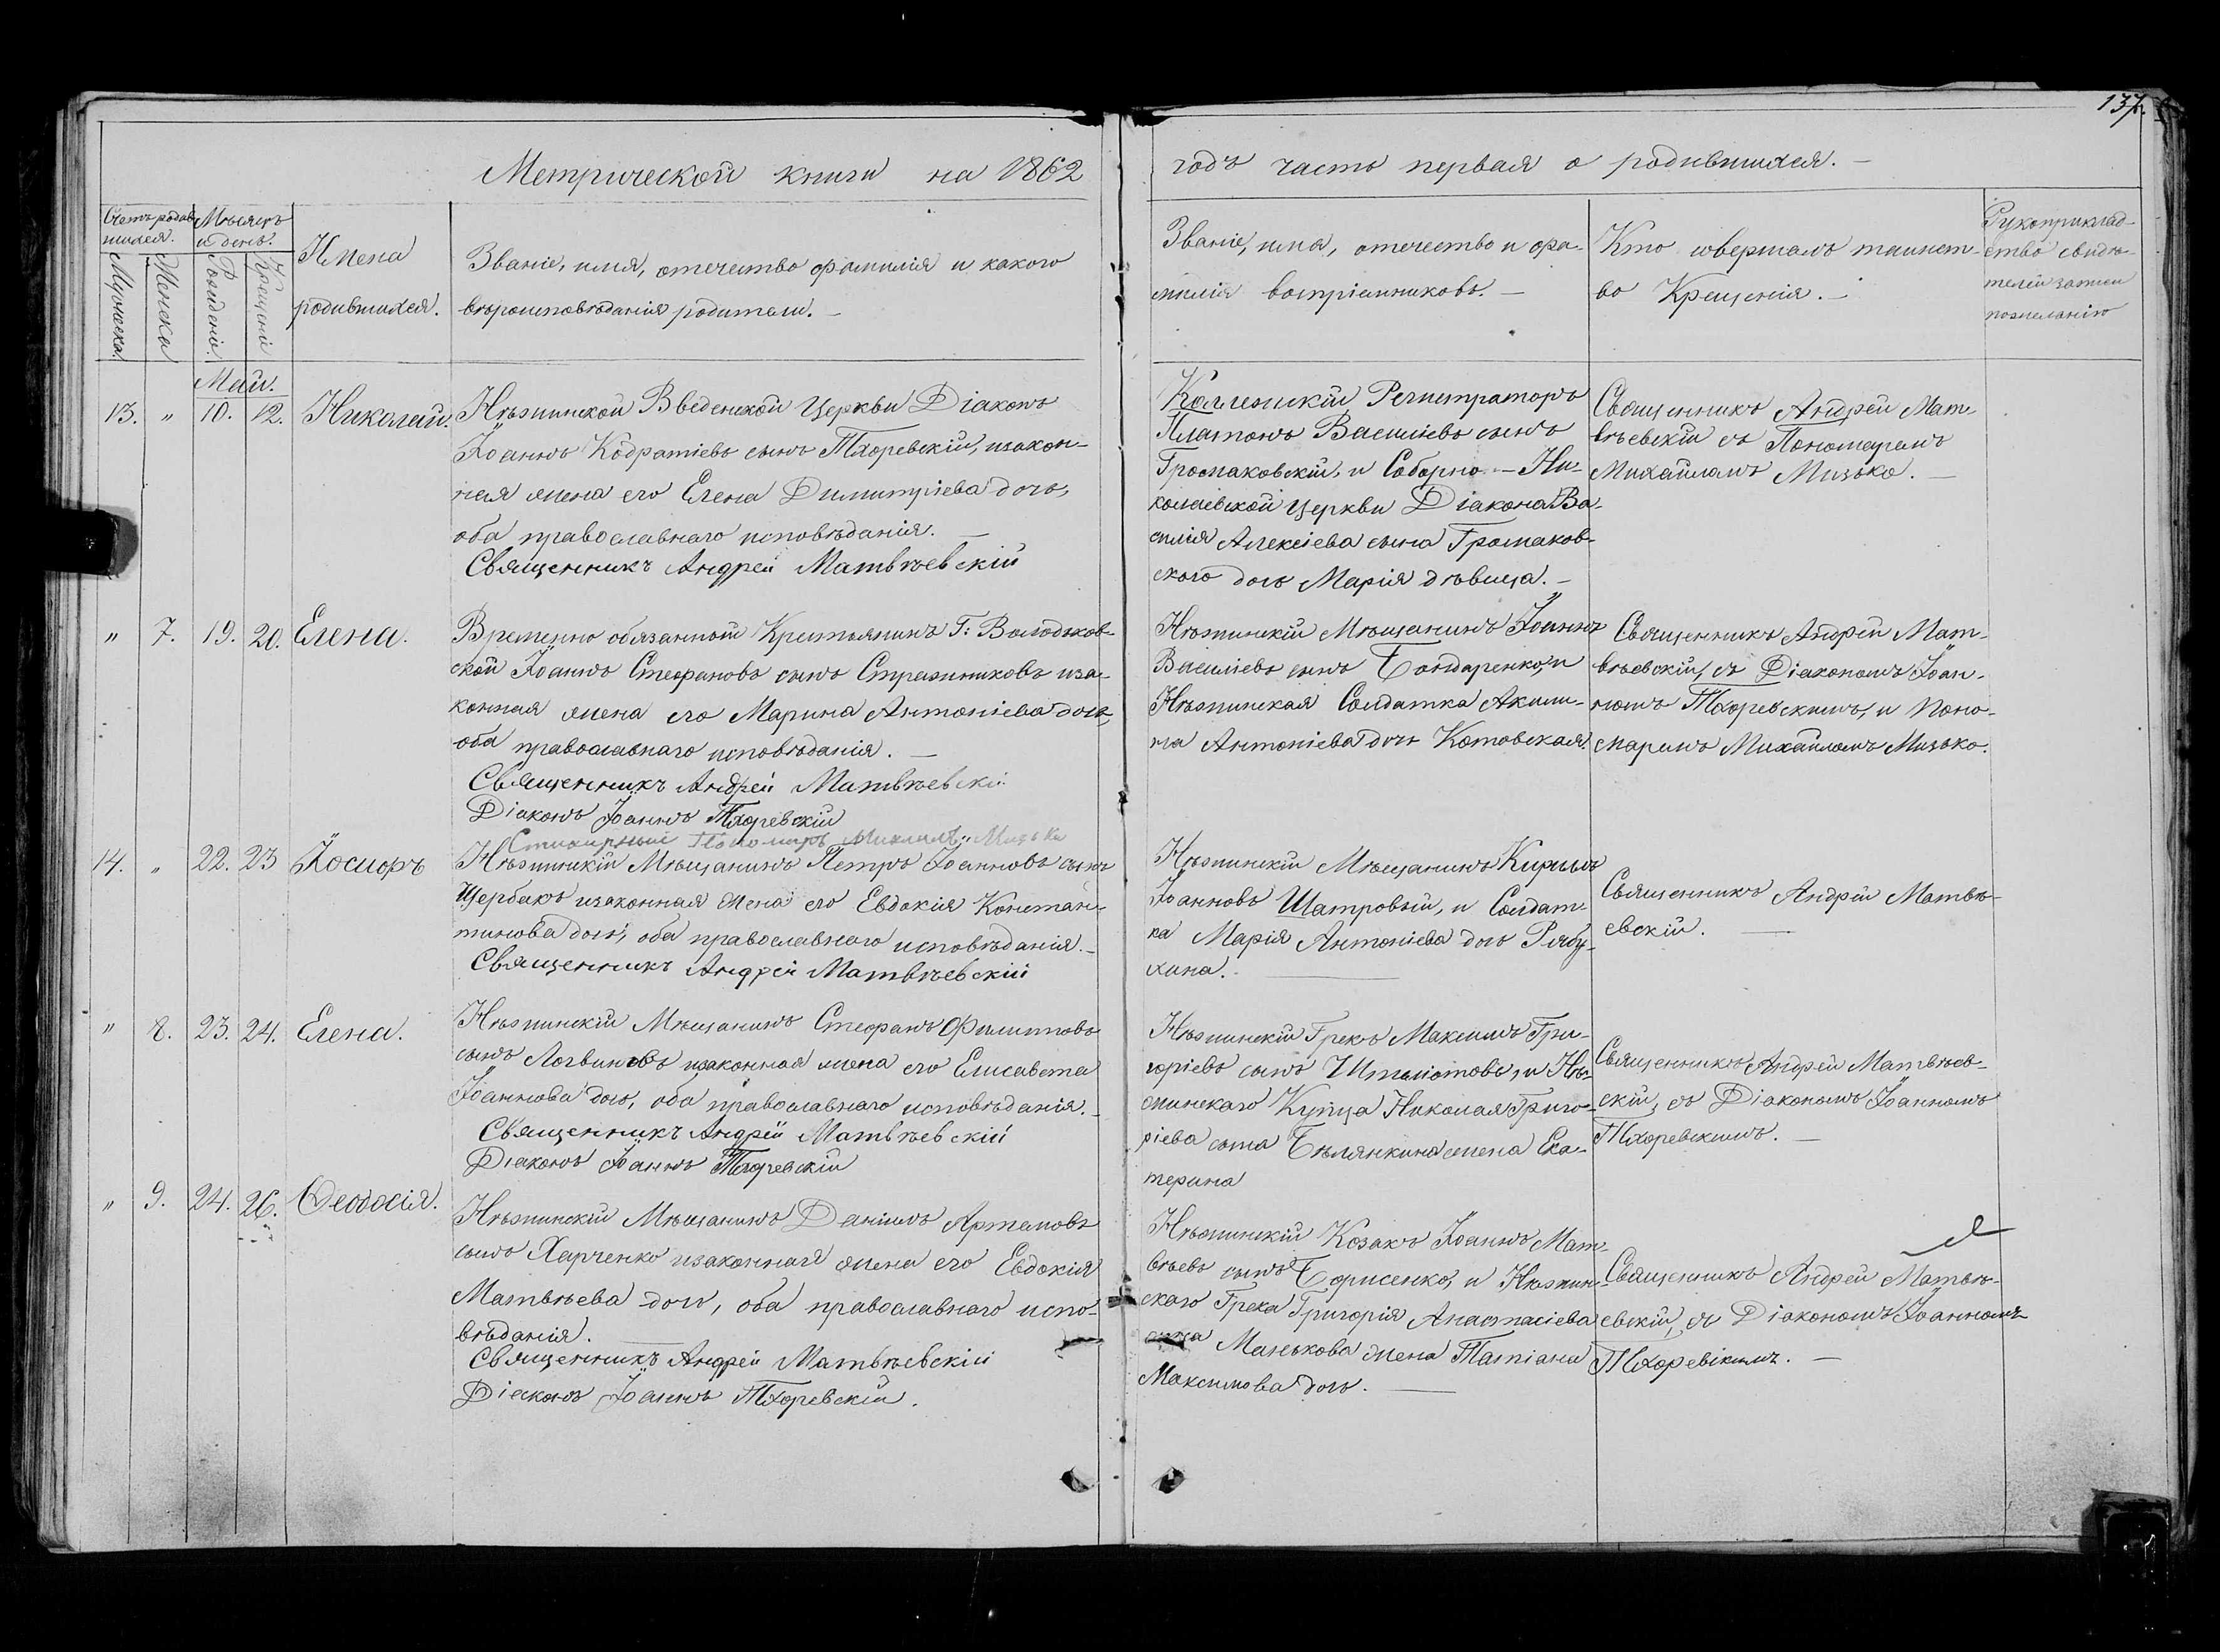 137.
Метрической книги на 1862
годъ часть первая о родившихся. —
Счетъ родив
шихся.
Мѣсяцъ
и день.
Мужеска
Женска
Рожденія.
Крещенія
Имена
родившихся.
Званіе, имя, отечество фамилія и какого
вѣроисповѣданія родители. —
Званіе, имя, отечество и фа-
милія воспріемниковъ. —
Кто совершалъ таинст-
во Крещенія. —
Рукоприклад-
ство свидѣ-
телей записи
по желанію
Май.
13. " 10. 12. Николай.
Нѣжинской Введенской Церкви Діаконъ
Іоаннъ Кодратіевъ сынъ Тхоревскій, изакон-
ная жена его Елена Димитріева дочь,
оба православнаго исповѣданія. —
Священникъ Андрей Матвѣевскій
Коллежскій Регистраторъ
Платонъ Василіевъ сынъ
Громаковскій, и Соборно-Ни-
колаевской Церкви Діакона Ва-
силія Алексіева сына Громаков-
ского дочь Марія дѣвица. —
Священникъ Андрей Мат-
вѣевскій съ Пономаремъ
Михаиломъ Мизько. —
" 7. 19. 20. Елена.
Временно обязанной Крестьянинъ Г: Володьков-
ской Іоаннъ Стефановъ сынъ Стражниковъ иза-
конная жена его Марина Антоніева дочь,
оба православнаго исповѣданія. —
Священникъ Андрей Матвѣевскій
Діаконъ Іоаннъ Тхоревскій
Стихарный Пономарь Михаилъ Мизько
Нѣжинскій Мѣщанинъ Іоаннъ
Василіевъ сынъ Бондаренко, и
Нѣжинская Солдатка Акили-
на Антоніева дочь Котовская.
Священникъ Андрей Мат-
вѣевскій, съ Діакономъ Іоан-
номъ Тхоревскимъ, и Поно-
маримъ Михаиломъ Мизько.
14. " 22. 23 Іосифъ
Нѣжинскій Мѣщанинъ Петръ Іоанновъ сынъ
Щербакъ изаконная жена его Евдокія Констан-
тинова дочь, оба православнаго исповѣданія. —
Священникъ Андрей Матвѣевскій
Нѣжинскій Мѣщанинъ Кирилъ
Іоанновъ Шатровый, и Солдат-
ка Марія Антоніева дочь Рябу-
хина. —
Священникъ Андрей Матвѣ-
евскій. —
" 8. 23. 24. Елена.
Нѣжинскій Мѣщанинъ Стефанъ Филиповъ
сынъ Логвиновъ изаконная жена его Елисавета
Іоаннова дочь, оба православнаго исповѣданія. —
Священникъ Андрей Матвѣевскій
Діаконъ Іоаннъ Тхоревскій
Нѣжинскій Грекъ Максимъ Гри-
горіевъ сынъ и Нѣ-
жинскаго Купца Николая Григо-
ріева сына Бѣлянкина жена Ека-
терина
Священникъ Андрей Матвѣев-
скій, съ Діакономъ Іоанномъ
Тхоревскимъ. —
" 9. 24. 26. Ѳеодосія.
Нѣжинскій Мѣщанинъ Даніилъ Артемовъ
сынъ Харченко изаконная жена его Евдокія
Матвѣева дочь, оба православнаго испо-
вѣданія. —
Священникъ Андрей Матвѣевскій
Діаконъ Іоаннъ Тхоревскій.
Нѣжинскій Козакъ Іоаннъ Мат-
вѣевъ сынъ Борисенко, и Нѣжин-
скаго Грека Григорія Анастасіева
сына Манькова жена Татіана
Максимова дочь. —
Священникъ Андрей Матвѣ-
евскій, съ Діакономъ Іоанномъ
Тхоревскимъ. —